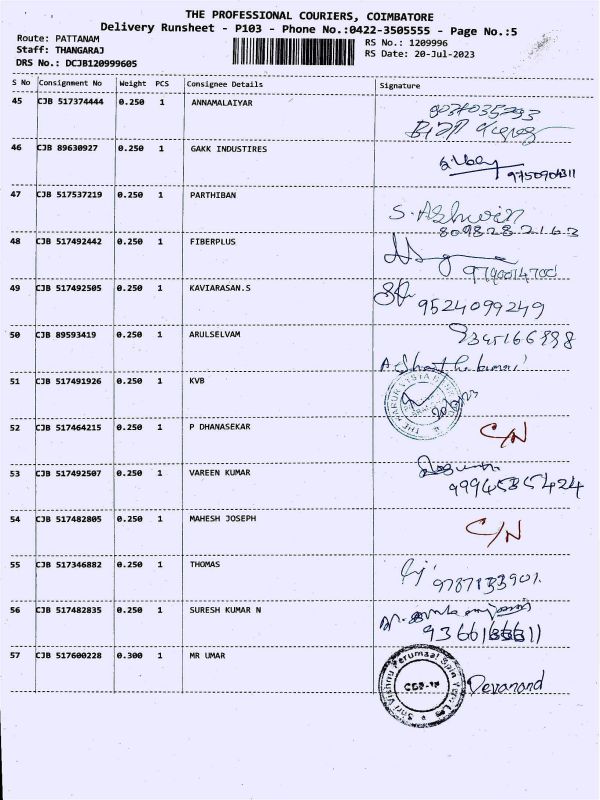 THE PROFESSIONAL COURIERS, COIMBATORE
Delivery Runsheet - P103 - Phone No.:0422-3505555 - Page No.:5
Route: PATTANAM
RS No.: 1209996
Staff: THANGARAJ
RS Date: 20-Jul-2023
DRS No.: DCJB120999605
S No Consignment No Weight PCS Consignee Details Signature
45 CJB 517374444 0.250 1 ANNAMALAIYAR
46 CJB 89630927 0.250 1 GAKK INDUSTIRES
9750904311
47 CJB 517537219 0.250 1 PARTHIBAN
S. Ashwin
8098282163
48 CJB 517492442 0.250 1 FIBERPLUS
49 CJB 517492505 0.250 1 KAVIARASAN.S
9524099249
50 CJB 89593419 0.250 1 ARULSELVAM
51 CJB 517491926 0.250 1 KVB
52 CJB 517464215 0.250 1 P DHANASEKAR C/N
53 CJB 517492507 0.250 1 VAREEN KUMAR
54 CJB 517482805 0.250 1 MAHESH JOSEPH C/N
55 CJB 517346882 0.250 1 THOMAS
9787133901
56 CJB 517482835 0.250 1 SURESH KUMAR N
57 CJB 517600228 0.300 1 MR UMAR Devanand